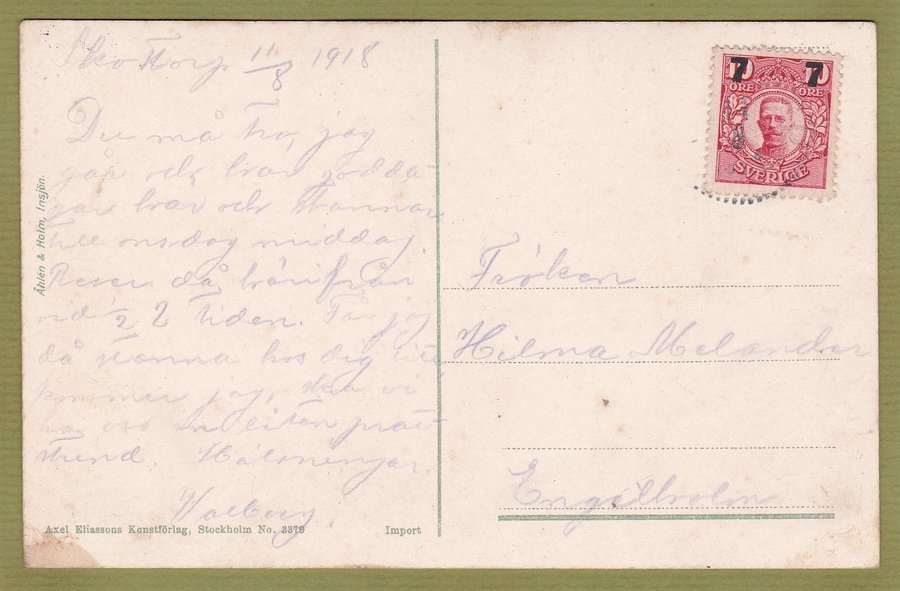 Skottorp 11/8 1918
Du må tro, jag
går och har
bra och stannar
till onsdag middag.
Reser då härifrån
vid 1/2 2 tiden. Får jag
då stanna hos dig lite
kommer jag, ska vi
ha oss en liten prat
stund. Hälsningar.
Walborg.
Åhlén & Holm, Insjön.
Axel Eliassons Konstförlag, Stockholm No. 3379
Import
7 7
ÖRE ÖRE
SVERIGE
Fröken
Hilma Melander
Engelholm